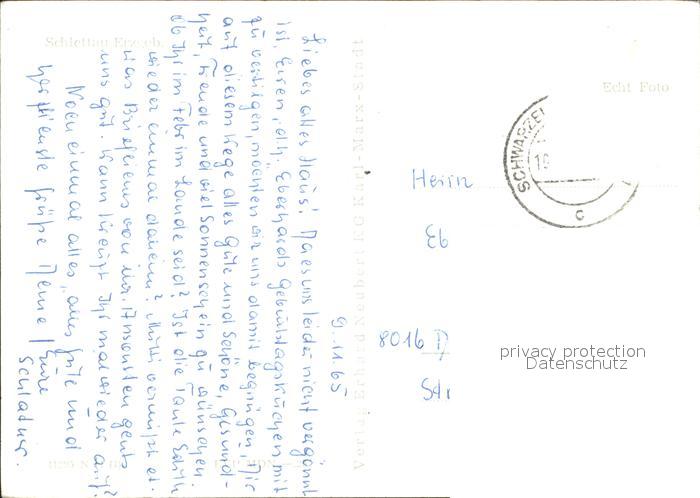 Schlettau Erzgeb.
9.11.65
Liebes altes Haus! Da es uns leider nicht vergönnt
ist, Euren, d.h. Eberhards Geburtstagskuchen mit
zu vertilgen, möchten wir uns damit begnügen, Dir
auf diesem Wege alles Gute und Schöne, Gesund-
heit, Freude und viel Sonnenschein zu wünschen.
Ob Ihr im Febr. im Lande seid? Ist die Tante Edith
wieder einmal daheim? Mutti vermißt et-
was Briefliches von ihr. Ansonsten gehts
uns gut. Wann kreuzt Ihr mal wieder auf?
Noch einmal alles, alles Gute und
herzlichste Grüße Deine / Eure
Schlattner.
Verlag Erhard Neubert KG Karl-Marx-Stadt
Echt Foto
SCHWARZE
C
Herrn
Eb
8016 D
Str
privacy protection
Datenschutz